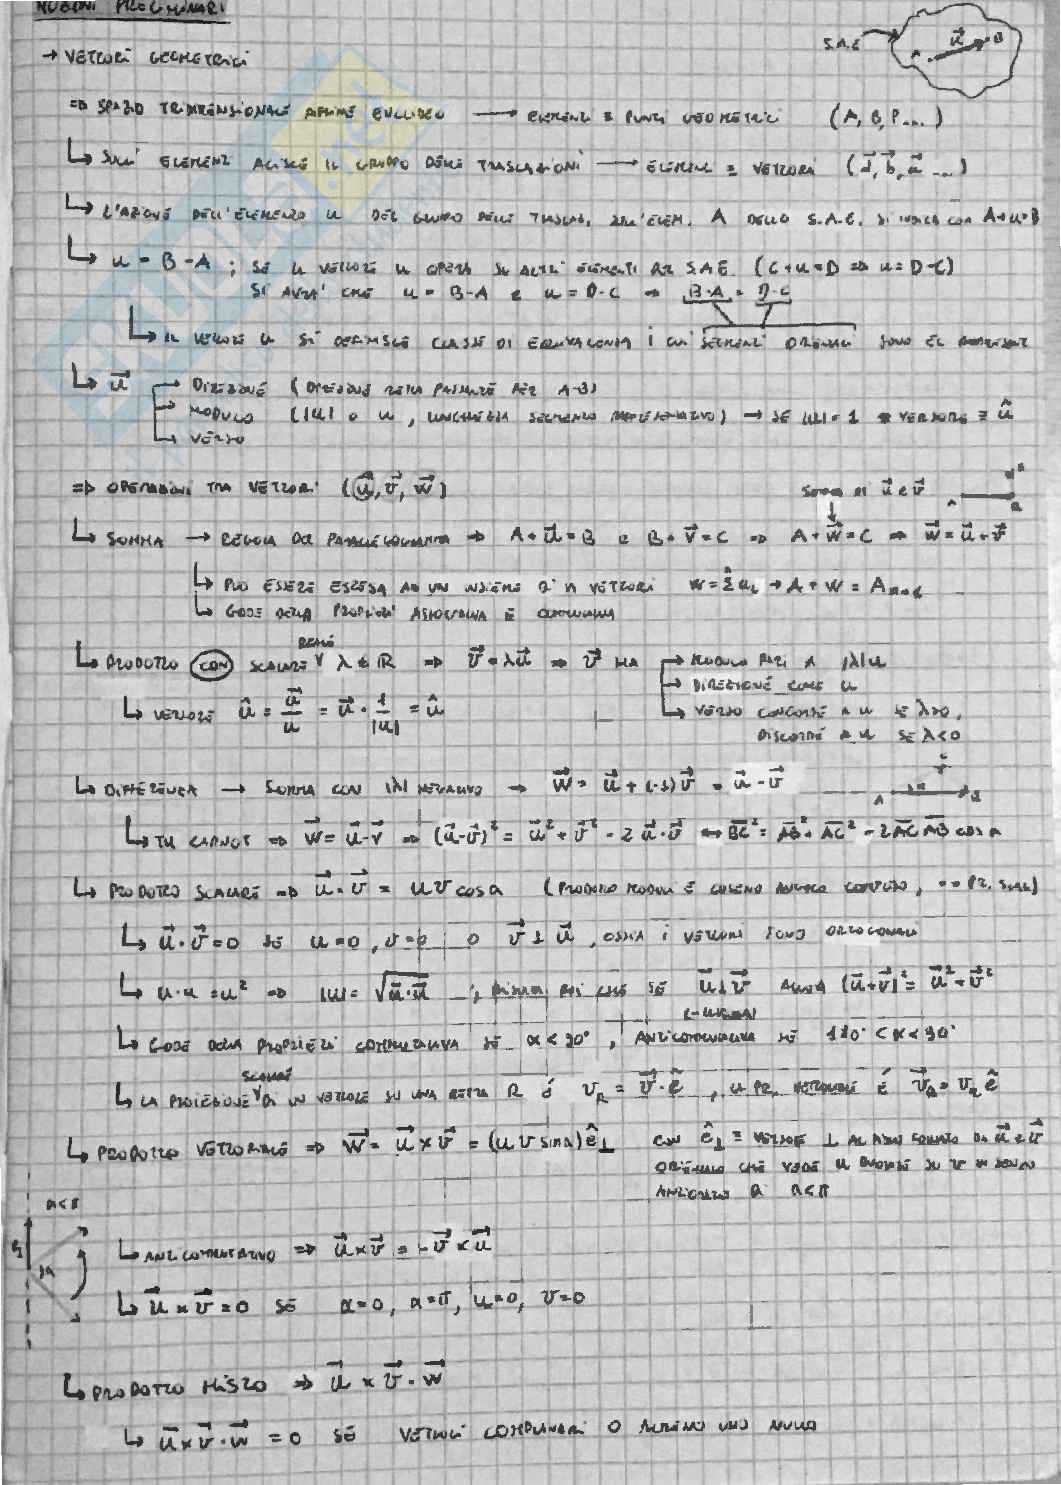 NOZIONI PRELIMINARI
→ VETTORI GEOMETRICI
S.A.E. A u⃗ B
⇒ SPAZIO TRIDIMENSIONALE AFFINE EUCLIDEO → ELEMENTI ≡ PUNTI GEOMETRICI (A, B, P...)
↳ SUGLI ELEMENTI AGISCE IL GRUPPO DELLE TRASLAZIONI → ELEMENTI ≡ VETTORI (d⃗, b⃗, a⃗ ...)
↳ L'AZIONE DELL'ELEMENTO u DEL GRUPPO DELLE TRASLAZ. SULL'ELEM. A DELLO S.A.E. SI INDICA CON A+u=B
↳ u = B-A ; SE IL VETTORE u OPERA SU ALTRI ELEMENTI DI S.A.E. (C+u=D ⇒ u=D-C)
SI AVRA' CHE u = B-A E u = D-C ⇒ B-A = D-C
↳ IL VETTORE u SI DEFINISCE CLASSE DI EQUIVALENZA I CUI SEGMENTI ORIENTATI SONO EL.
↳ u⃗ → DIREZIONE (DIREZIONE RETTA PASSANTE PER A-B)
→ MODULO (|u| O u, LUNGHEZZA SEGMENTO RAPPRESENTATIVO) → SE |u|=1 VERSORE ≡ û
→ VERSO
⇒ OPERAZIONI TRA VETTORI (u⃗, v⃗, w⃗)
SOMMA DI u⃗ E v⃗
↳ SOMMA → REGOLA DEL PARALLELOGRAMMA ⇒ A+u⃗=B E B+v⃗=C ⇒ A+w⃗=C ⇒ w⃗=u⃗+v⃗
↳ PUO ESSERE ESTESA AD UN INSIEME DI n VETTORI
↳ GODE DELLA PROPRIETA' ASSOCIATIVA E COMMUTATIVA
↳ PRODOTTO CON SCALARE REALE λ ∈ ℝ ⇒ v⃗=λu⃗ ⇒ v⃗ HA → MODULO PARI A |λ|u
→ DIREZIONE COME u
↳ VERSORE û = u⃗/u = u⃗ · 1/|u| = û
→ VERSO CONCORDE A u SE λ>0,
DISCORDE A u SE λ<0
↳ DIFFERENZA → SOMMA CON |λ| NEGATIVO → w⃗ = u⃗ + (-1)v⃗ = u⃗ - v⃗
↳ TH CARNOT ⇒ w⃗ = u⃗-v⃗ ⇒ (u⃗-v⃗)² = u⃗² + v⃗² - 2u⃗·v⃗ ⇔ BC² = AB² + AC² - 2AC AB cos α
↳ PRODOTTO SCALARE ⇒ u⃗·v⃗ = u v cos α (PRODOTTO MODULI E COSENO ANGOLO COMPRESO,
↳ u⃗·v⃗=0 SE u=0, v=0 O v⃗ ⊥ u⃗, OSSIA I VETTORI SONO ORTOGONALI
↳ u·u=u² ⇒ |u| = √u⃗·u⃗ CHE SE u⃗⊥v⃗ ALLORA (u⃗+v⃗)² = u⃗²+v⃗²
↳ GODE DELLA PROPRIETA' COMMUTATIVA SE α<90°, ANTICOMMUTATIVA SE 180°<α<90°
↳ LA PROIEZIONE SCALARE DI UN VETTORE SU UNA RETTA R É v_R = v⃗·ê, LA PR. VETTORIALE É v⃗_R = v_R ê
↳ PRODOTTO VETTORIALE ⇒ w⃗ = u⃗×v⃗ = (u v sin α) ê⊥ CON ê⊥ ≡ VERSORE ⊥ AL PIANO FORMATO DA u⃗ E v⃗
ORIENTATO CHE VEDE u RUOTARE SU v IN SENSO
ANTIORARIO α<π
α<π
↳ ANTICOMMUTATIVO ⇒ u⃗×v⃗ = -v⃗×u⃗
↳ u⃗×v⃗=0 SE α=0, α=π, u=0, v=0
↳ PRODOTTO MISTO ⇒ u⃗×v⃗·w⃗
↳ u⃗×v⃗·w⃗ = 0 SE VETTORI COMPLANARI O ALMENO UNO NULLO